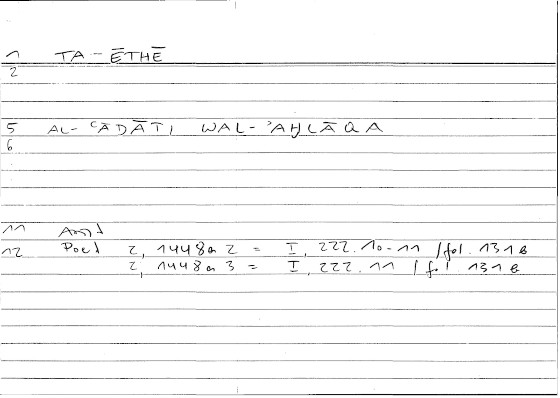 1 TA-ĒTHĒ
2
5 AL-ʿĀDĀTI WAL-ʾAḪLĀQA
6
11 Arist
12 Poet 2, 1448a 2 = I, 222.10-11 / fol. 131b
2, 1448a 3 = I, 222.11 / fol. 131b